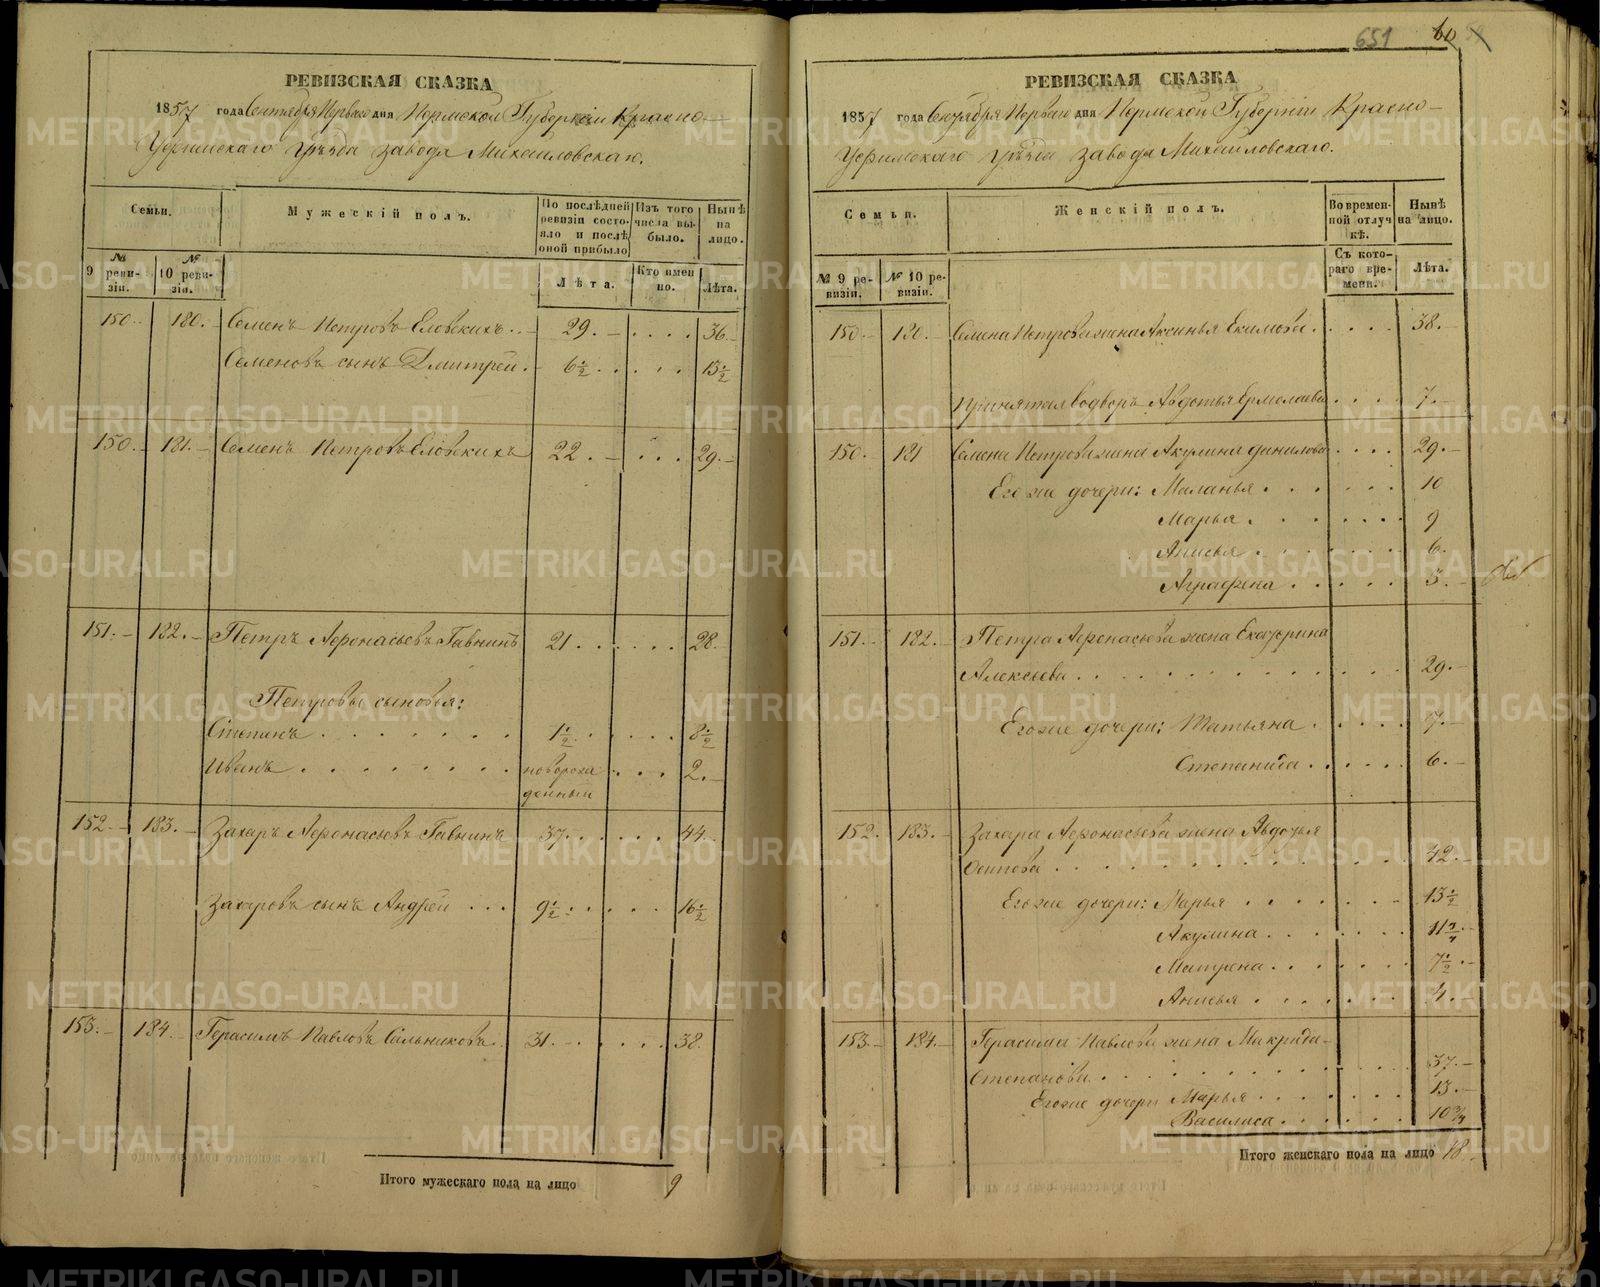 651 60
РЕВИЗСКАЯ СКАЗКА
1857 года Сентября Первого дня Пермской Губернiи Красно-
Уфимскаго Уѣзда завода Михайловскаго.
Семьи.
Мужескiй полъ.
По послѣдней ревизiи состояло и послѣ оной прибыло
Изъ того числа выбыло.
Нынѣ на лицо.
№ 9 ревизiи.
№ 10 ревизiи.
Лѣта.
Кто именно.
Лѣта.
150. 180. Семенъ Петровъ Еловскихъ 29. 36
Семеновъ сынъ Дмитрей 6½ 13½
150. 181. Семенъ Петровъ Еловскихъ 22. 29.
151. 182. Петръ Афонасьевъ Гавнинъ 21 28.
Петровы сыновья:
Степанъ 1½ 8½
Иванъ новорожденный 2.
152. 183. Захаръ Афонасьевъ Гавнинъ 37. 44
Захаровъ сынъ Андрей 9½ 16½
153. 184. Герасимъ Павловъ Сальниковъ 31. 38.
Итого мужескаго пола на лицо 9
РЕВИЗСКАЯ СКАЗКА
1857 года Сентября Первого дня Пермской Губернiи Красно-
Уфимскаго Уѣзда завода Михайловскаго.
Семьи.
Женскiй полъ.
Во временной отлучкѣ.
Нынѣ на лицо.
№ 9 ревизiи.
№ 10 ревизiи.
Съ котораго времени.
Лѣта.
150. 180. Семена Петрова жена Аксинья Екимова 38.
Принятая Авдотья Ермолаева 7.
150. 181 Семена Петрова жена Акулина Данилова 29.
Его же дочери: Маланья 10
Марья 9
Анисья 6.
Аграфена 3.
151. 182. Петра Афонасьева жена Екатерина
Алексеева 29.
Его же дочери: Татьяна 7.
Степанида 6.
152. 183. Захара Афонасьева жена Авдотья
Осипова 42.
Его же дочери: Марья 13½
Акулина
Матрена 7½
Анисья 4.
153. 184. Герасима Павлова жена Макрида
Степанова 37.
Его же дочери Марья 13.
Василиса 10¾
Итого женскаго пола на лицо 18
METRIKI.GASO-URAL.RU